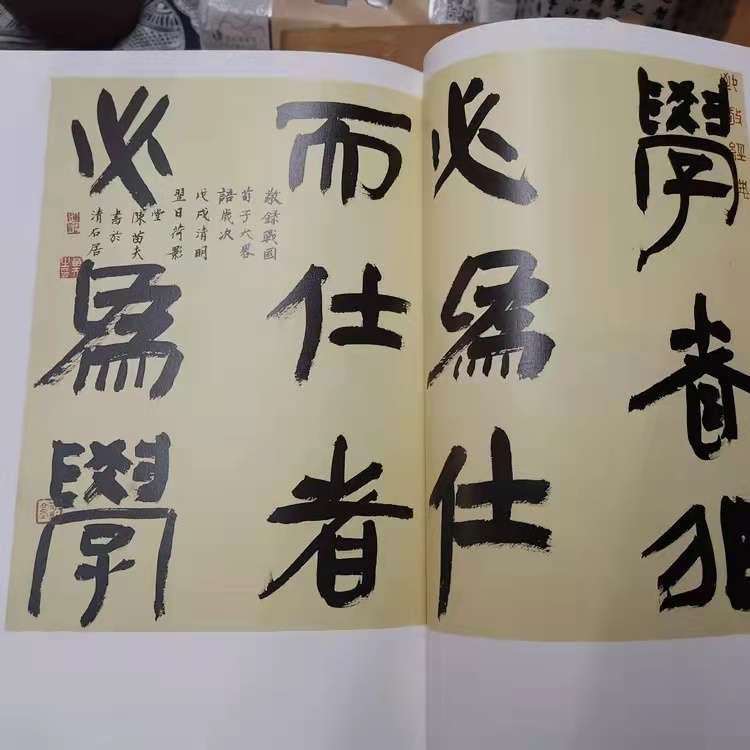 學者非
必爲仕
而仕者
必爲學
敬錄戰國
荀子大畧
語歲次
戊戌清明
翌日荷影
堂
陳苗夫
書於
清石居